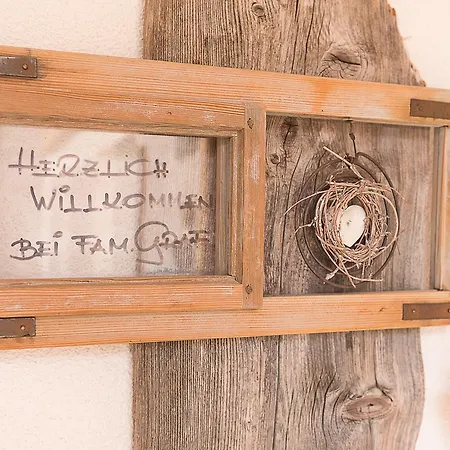 HERZLICH
WILLKOMMEN
BEI FAM.